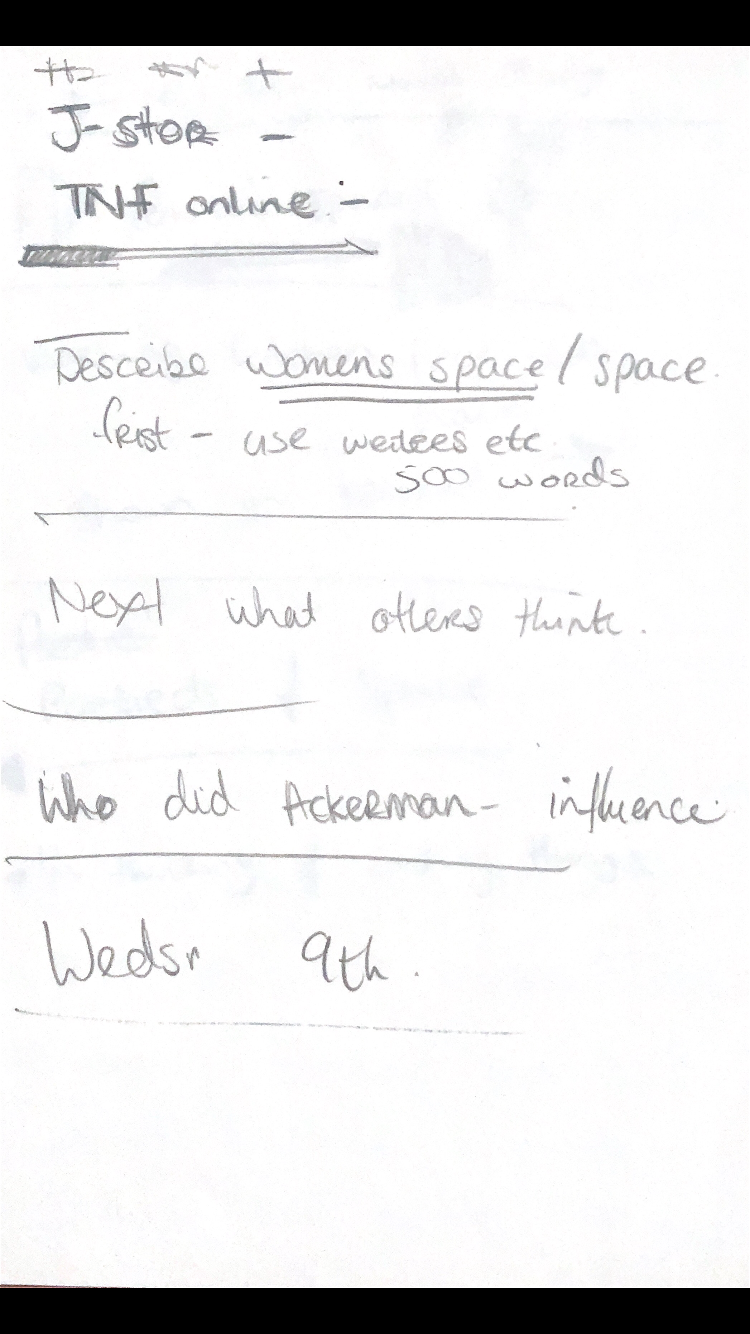 +
J-stor -
TNF online :-
Describe womens space / space.
first - use writers etc.
500 words
Next what others think.
Who did Ackerman - influence
Weds 9th.